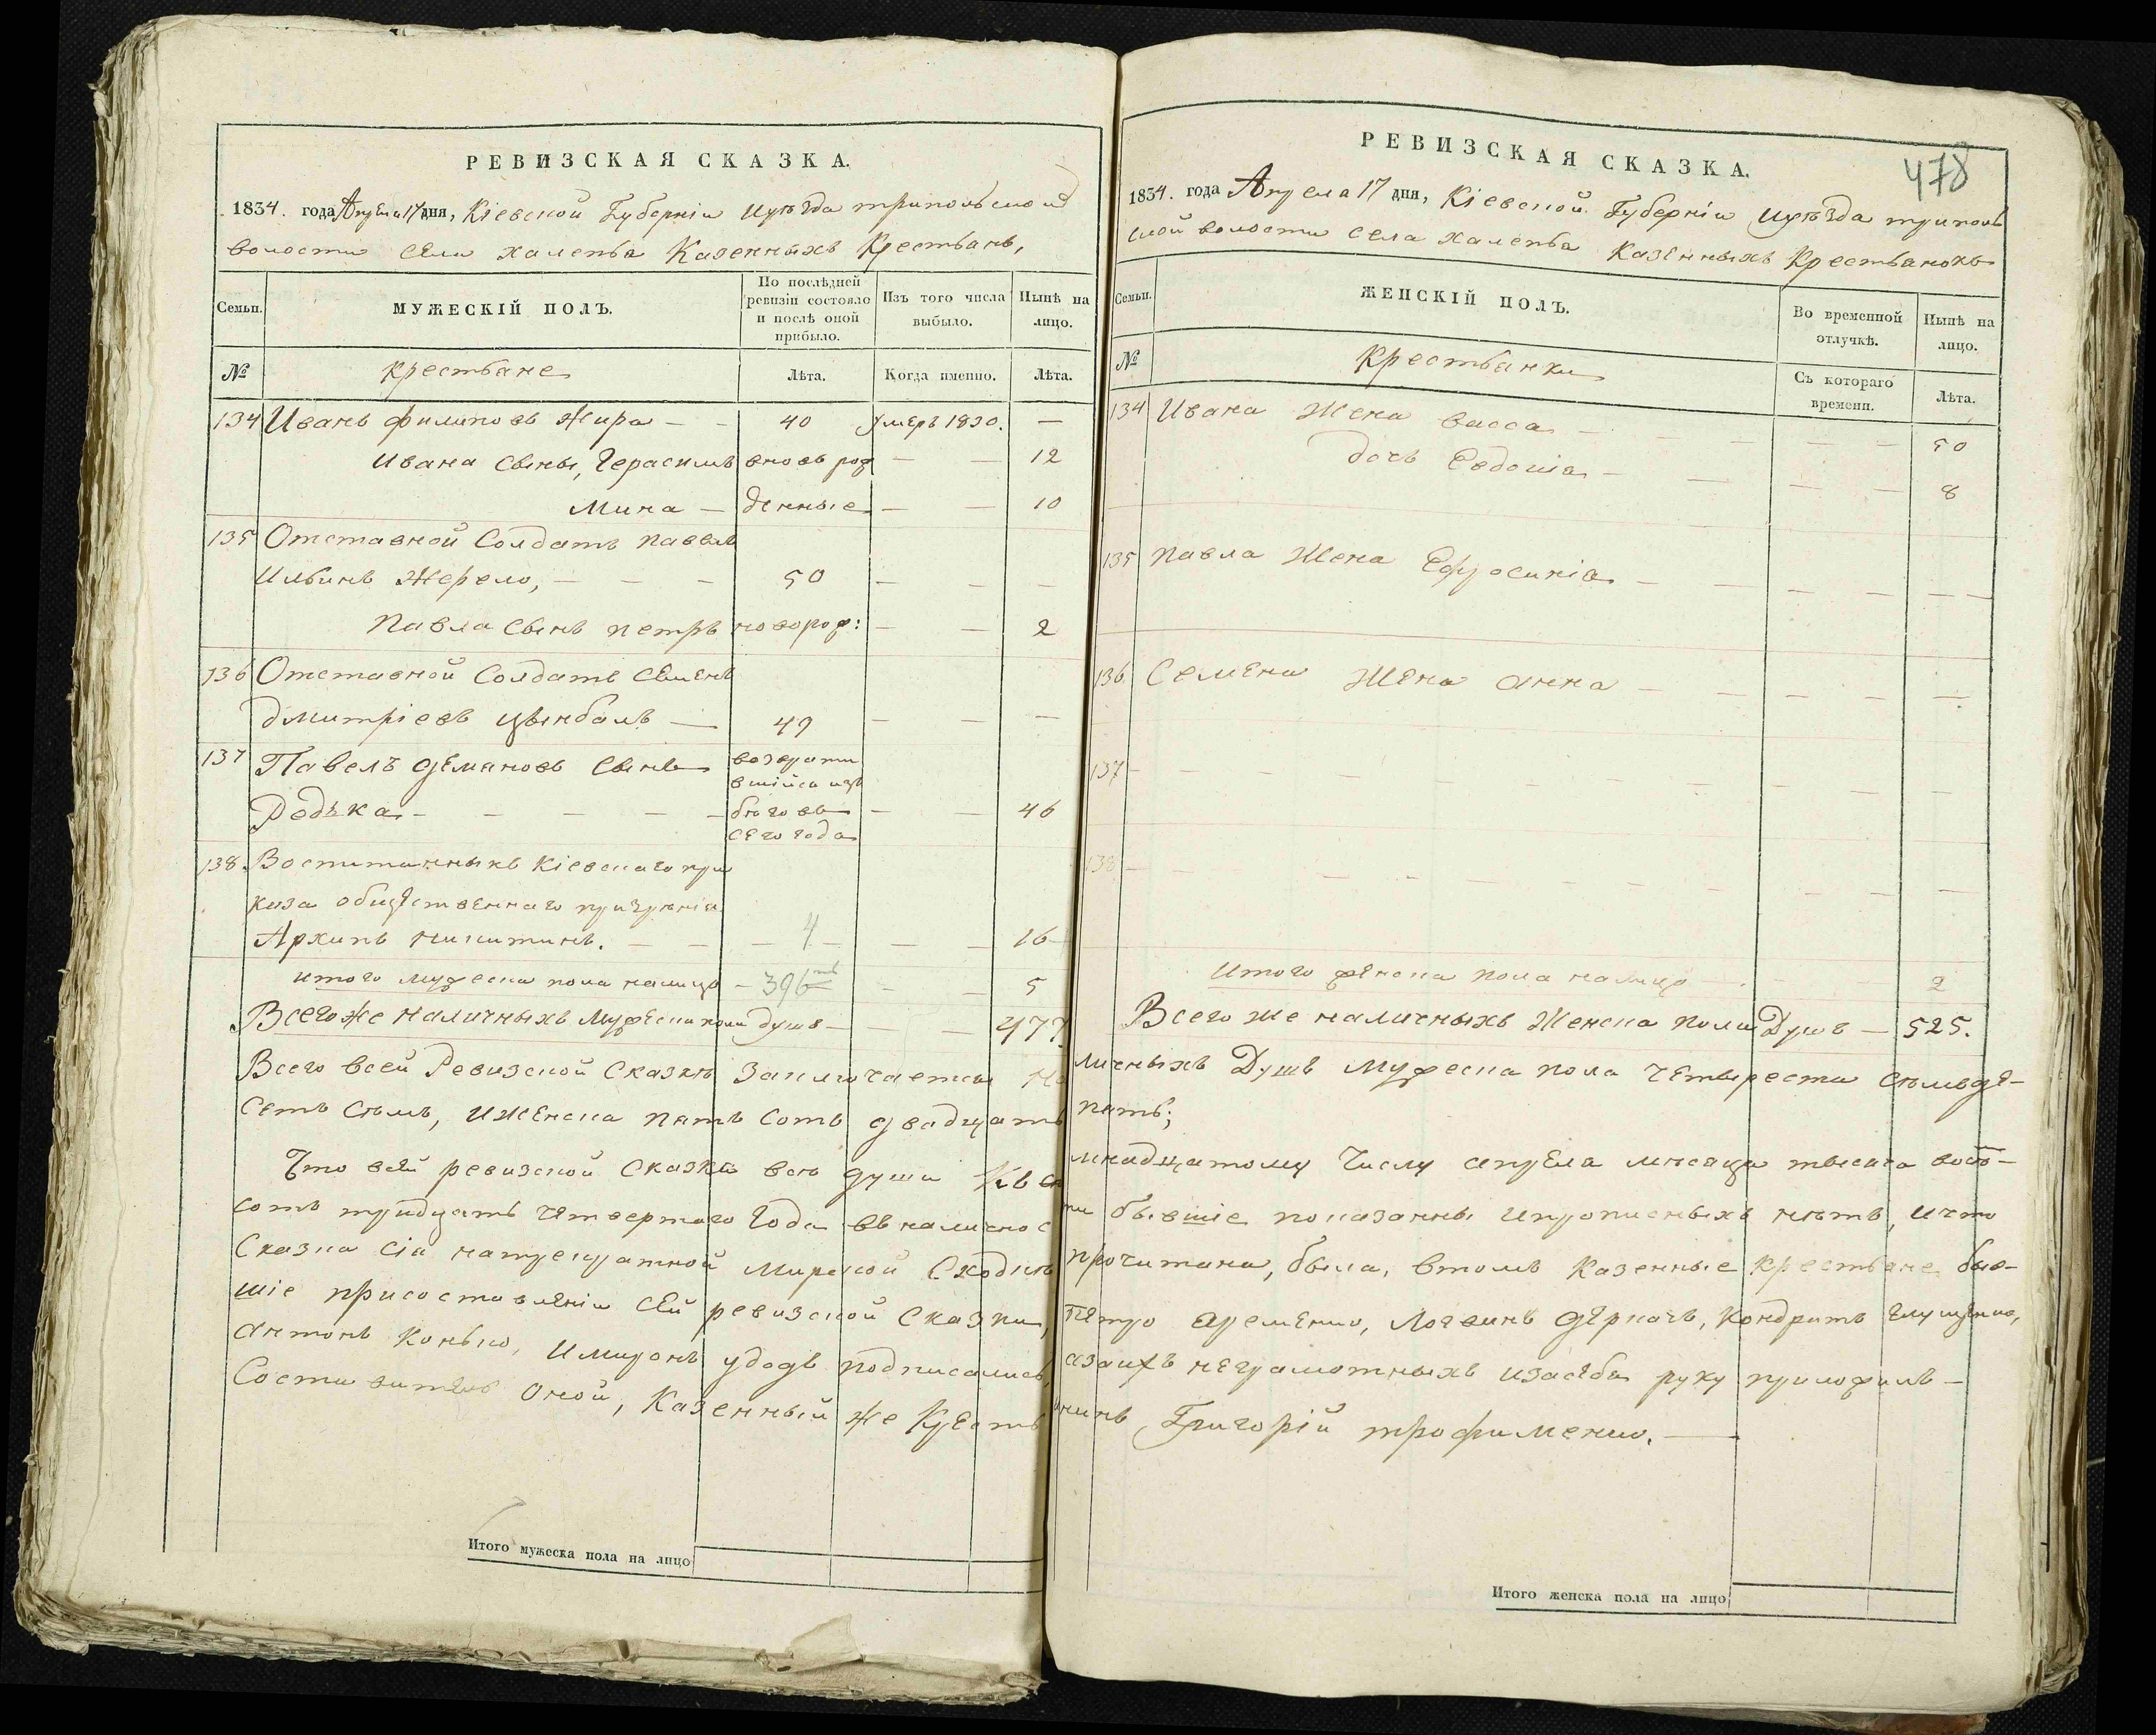 РЕВИЗСКАЯ СКАЗКА.
1834. года Апреля 17 дня, Кіевской Губерніи Иуѣзда трипольской
волости села халепья Казенныхъ Крестьянъ,
Семьи.
МУЖЕСКІЙ ПОЛЪ.
По послѣдней ревизіи состояло и послѣ оной прибыло.
Изъ того числа выбыло.
Нынѣ на лицо.
№
крестьане
Лѣта.
Когда именно.
Лѣта.
134 Иванъ филиповъ Жира — — 40 умеръ 1830. —
Ивана сыны, Герасимъ вновь рож — — 12
Мина — денные — — 10
135 Отставной Солдатъ павелъ
Ильинъ Жерело, — — — 50 — — —
Павла сынъ петръ новорож: — — 2
136 Отставной Солдатъ Семенъ
дмитріевъ цымбалъ — 49 — — —
137 Павелъ демяновъ сынъ возврати
вшійся изъ
Редька — — — — — бѣговъ — — 46
сего года
138. Воспитанныкъ Кіевскаго при
каза общественнаго призренія
Архипъ никитинъ. — — — 4 — — — 16
итого мужеска пола налицо — 396 — — 5
Всегоже наличныхъ мужеска пола душъ — — — 477.
Всего всей Ревизской Сказкѣ заключается на
сетъ семь, иженска пять сотъ двадцать
Что всей ревизской Сказкѣ всѣ души Къ се
сотъ тридцать четвертаго года въ наличнос
Сказка сія натрекратной мирской Сходкѣ
шіе присоставленіи сей ревизской сказки,
антонъ Конько, имиронъ удодъ подписались,
Составитель оной, Казенный же Крестья
Итого мужеска пола на лицо
РЕВИЗСКАЯ СКАЗКА.
478
1834. года Апреля 17 дня, Кіевской Губерніи Иуѣзда триполь
ской волости села халепья Казенныхъ Крестьянокъ
Семьи.
ЖЕНСКІЙ ПОЛЪ.
Во временной отлучкѣ.
Нынѣ на лицо.
№
Крестьянки
Съ котораго времени.
Лѣта.
134 Ивана Жена васса — — — — — 50
дочь Евдокія — — — — 8
135 павла Жена Ефросинія — — — — — —
136. Семена Жена анна — — — — —
137 — — — — — — — — — —
138 — — — — — — — — — —
Итого женска пола налицо — — — 2
Всего же наличныхъ Женска пола Душъ — 525.
личныхъ Душъ мужеска пола четыреста семьде-
пять;
мнадцатому Числу апреля месяца тысяча вось-
ти бывшіе показанны ипрописныхъ нѣтъ, ичто
прочитана, была, втомъ казенные крестьяне быв-
Петро яременко, Логвинъ деркачь, Кондратъ глущенко,
азаихъ неграмотныхъ изасебя руку приложилъ —
нинъ Григорій трофименко. —
Итого женска пола на лицо